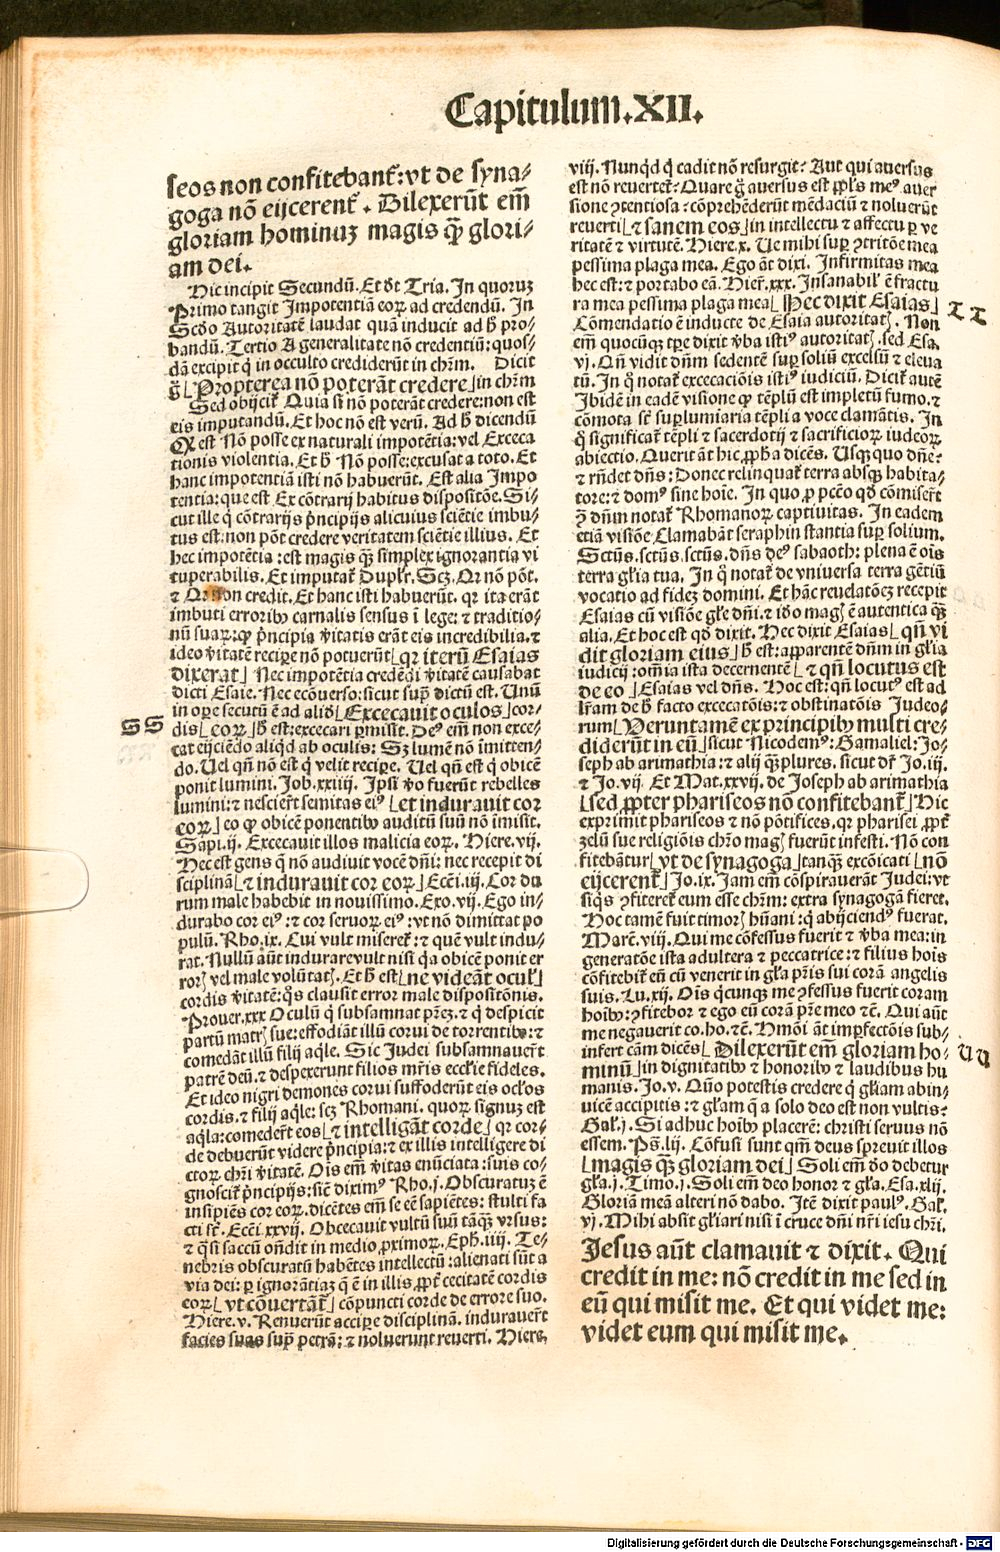 Capitulum.XII.
seos non confitebanť: vt de syna⸗
goga nõ eijcerenť. Dilexerũt em̃
gloriam hominuꝫ magis q̃ꝫ glori⸗
am dei.
Hic incipit Secundũ. Et dr̃t Tria. In quoruꝫ
Primo tangit Impotentiã eoꝝ ad credendũ. In
Scďo Autoritatẽ laudat quã inducit ad ħ pro⸗
bandũ. Tertio A generalitate nõ credentiũ: quos⸗
dã excipit q̇ in occulto crediderũt in chr̃m. Dicit
g̃ ⌊Propterea nõ poterãt credere⌋ in chr̃m
Sed obijciť. Quia si nõ poterãt credere: non est
eis imputandũ. Et hoc nõ est verũ. Ad ħ dicendũ
Ꝙ est Nõ posse ex naturali impotẽtia: vel Exceca
tionis violentia. Et ħ Nõ posse: excusat a toto. Et
hanc impotentiã isti nõ habuerũt. Est alia Impo
tentia: que est Ex cõtrarij habitus dispositõe. Si⸗
cut ille q̇ cõtrarijs p̃ncipijs alicuius sciẽtie imbu⸗
tus est: non põt credere veritatem sciẽtie illius. Et
hec impotẽtia: est magis q̃ꝫ simplex ignorantia vi
tuperabilis. Et imputať Duplr̃. Scꝫ. Qr nõ põt.
⁊ Qr non credit. Et hanc isti habuerũt. qr ita erãt
imbuti erroribꝰ carnalis sensus ĩ lege: ⁊ traditio⸗
nũ suaꝝ: ꝙ p̃ncipia v̓itatis erãt eis incredibilia. ⁊
ideo v̓itatẽ recipe nõ potuerũt ⌊qr iterũ Esaias
dixerat⌋ Nec impotẽtia credẽdi v̓itatẽ causabat
dicti Esaie. Nec ecõuerso: sicut supͣ dictũ est. Unũ
in oꝑe secutũ ẽ ad aliď ⌊Excecauit oculos⌋ cor⸗
SS
dis ⌊eoꝝ⌋ ħ est: excecari ꝑmisit. Deꝰ em̃ non exce⸗
cat eijciẽdo aliqď ab oculis: Sꝫ lumẽ nõ ĩmitten⸗
do. Uel qñ nõ est q̇ velit recipe. Uel qñ est q̇ obicẽ
ponit lumini. Job. xxiiij. Ipsi v̓o fuerũt rebelles
lumini: ⁊ nescier̃t semitas eiꝰ ⌊et indurauit cor
eoꝝ⌋ eo ꝙ obicẽ ponentibꝰ auditũ suũ nõ ĩmisit.
Sapi. ij. Excecauit illos malicia eoꝝ. Hiere. vij.
Hec est gens q̇ nõ audiuit vocẽ dñi: nec recepit di
sciplinã ⌊⁊ indurauit cor eoꝝ⌋ Ecci. iij. Cor du
rum male habebit in nouissimo. Exo. vij. Ego in⸗
durabo cor eiꝰ: ⁊ cor seruoꝝ eiꝰ: vt nõ dimittat po
pulũ. Rho. ix. Cui vult misereť: ⁊ quẽ vult indu⸗
rat. Nullũ aũt indurare vult nisi q̇ a obicẽ ponit er
rorꝭ vel male volũtatꝭ. Et ħ est ⌊ne videãt oculꝭ⌋
cordis v̓itatẽ: q̊s clausit error male dispositõnis.
Prouer. xxx Oculũ q̇ subsamnat pr̃eꝫ. ⁊ q̇ despicit
partũ matrꝭ sue: effodiãt illũ corui de torrentibꝰ: ⁊
comedãt illũ filij aqͥle. Sic Judei subsamnauer̃t
patrẽ deũ. ⁊ despexerunt filios mr̃is eccl̃ie fideles.
Et ideo nigri demones corui suffoderũt eis oc̃los
cordis. ⁊ filij aqͥle: scꝫ Rhomani. quoꝝ signuꝫ est
aqͥla: comeder̃t eos ⌊⁊ intelligãt corde⌋ qr cor⸗
de debuerũt videre p̃ncipia: ⁊ ex illis intelligere di
ctoꝝ chr̃i v̓itatẽ. Ois em̃ v̓itas enũciata: suis co⸗
gnosciť p̃ncipijs: sic̃ diximꝰ Rho. j. Obscuratuꝫ ẽ
insipiẽs cor eoꝝ. dicẽtes em̃ se eẽ sapiẽtes: stulti fa
cti st̃. Ecci. xxvij. Obcecauit vultũ suũ tãqꝫ vrsus:
⁊ q̃si saccũ oñdit in medio ꝓximoꝝ. Eph. iiij. Te⸗
nebris obscuratũ habẽtes intellectũ: alienati sũt a
via dei: ꝑ ignorãtiaꝫ q̃ ẽ in illis ꝓpť cecitatẽ cordis
eoꝝ ⌊vt cõuertãť⌋ cõpuncti corde de errore suo.
Hiere. v. Renuerũt accipe disciplinã. indurauer̃t
facies suas supͣ petrã: ⁊ noluerunt reuerti. Hiere.
viij. Nunqͥd q̇ cadit nõ resurgit? Aut qui auersus
est nõ reuerteť? Quare g̃ auersus est ppl̃s meꝰ auer
sione ꝯtentiosa? cõprehẽderũt mẽdaciũ ⁊ noluerũt
reuerti ⌊⁊ sanem eos⌋ in intellectu ⁊ affectu ꝑ ve
ritatẽ ⁊ virtutẽ. Hiere. x. Ue mihi suꝑ ꝯtritõe mea
pessima plaga mea. Ego ãt dixi. Infirmitas mea
hec est: ⁊ portabo eã. Hier̃. xxx. Insanabilꝭ ẽ fractu
ra mea pessima plaga mea ⌊Hec dixit Esaias⌋
TT
Cõmendatio ẽ inducte de Esaia autoritatꝭ. Non
em̃ quocũqꝫ tꝑe dixit v̓ba istiꝰ autoritatꝭ. sed Esa.
vj. Qñ vidit dñm sedentẽ suꝑ soliũ excelsũ ⁊ eleua
tũ. In q̊ notať excecaciõis istiꝰ iudiciũ. Diciť autẽ
Ibidẽ in eadẽ visione ꝙ tẽplũ est impletũ fumo. ⁊
cõmota st̃ suꝑlumiaria tẽpli a voce clamãtis. In
q̊ significať tẽpli ⁊ sacerdotij ⁊ sacrificioꝝ iudeoꝝ
abiectio. Querit ãt hic ꝓpħa dicẽs. Usqꝫ quo dñe?
⁊ rñdet dñs: Donec relinquať terra absqꝫ habita⸗
tore: ⁊ domꝰ sine hoĩe. In quo ꝓ pcc̃o qď cõmiser̃t
ꝯ̃ dñm notať Rhomanoꝝ captiuitas. In eadem
etiã visiõe Clamabãt seraphin stantia suꝑ solium.
Sctũs. sctũs. sctũs. dñs deꝰ sabaoth: plena ẽ oĩs
terra gl̃ia tua. In q̊ notať de vniuersa terra gẽtiũ
vocatio ad fideꝫ domini. Et hãc reuelatõeꝫ recepit
Esaias cũ visiõe gl̃e dñi. ⁊ iďo magꝭ ẽ autentica q̃ꝫ
alia. Et hoc est qď dixit. Hec dixit Esaias ⌊qñ vi
dit gloriam eius⌋ ħ est: apparentẽ dñm in gl̃ia
iudicij: om̃ia ista decernentẽ ⌊⁊ qñ locutus est
de eo⌋ Esaias vel dñs. Hoc est: qñ locutꝰ est ad
lr̃am de ħ facto excecatõis: ⁊ obstinatõis Judeo⸗
rum ⌊Veruntamẽ ex principibꝰ multi cre⸗
diderũt in eũ⌋ sicut Nicodemꝰ: Gamaliel: Jo⸗
seph ab arimathia: ⁊ alij q̃ꝫplures. sicut dr̃ Jo. iij.
⁊ Jo. vij. Et Mat. xxvij. de Joseph ab arimathia
⌊sed ꝓpter phariseos nõ confitebanť⌋ Hic
exprimit phariseos ⁊ nõ põtifices. qr pharisei ꝓpť
zelũ sue religiõis chr̃o magꝭ fuerũt infesti. Nõ con
fitebãtur ⌊vt de synagoga⌋ tanqꝫ excõicati ⌊nõ
eijcerenť⌋ Jo. ix. Jam em̃ cõspirauerãt Judei: vt
siqͥs ꝯfitereť eum esse chr̃m: extra synagogã fieret.
Hoc tamẽ fuit timorꝭ hũani: q̇ abijciendꝰ fuerat.
Marc̃. viij. Qui me cõfessus fuerit ⁊ v̓ba mea: in
generatõe ista adultera ⁊ peccatrice: ⁊ filius hoĩs
cõfitebiť eũ cũ venerit in gl̃a pr̃is sui corã angelis
suis. Lu. xij. Ois q̇cunqꝫ me ꝯfessus fuerit coram
hoĩbꝰ: ꝯfitebor ⁊ ego eũ corã pr̃e meo ⁊c̃. Qui aũt
me negauerit co. ho. ⁊c̃. Hmõi ãt imꝑfectõis sub⸗
infert cãm dicẽs ⌊Dilexerũt em̃ gloriam ho⸗
UU
minũ⌋ in dignitatibꝰ ⁊ honoribꝰ ⁊ laudibus hu
manis. Jo. v. Quõ potestis credere q̇ gl̃iam abin⸗
uicẽ accipitis: ⁊ gl̃am q̃ a solo deo est non vultis?
Gal̃. j. Si adhuc hoĩbꝰ placerẽ: christi seruus nõ
essem. Ps̃. lij. Cõfusi sunt qm̃ deus spreuit illos
⌊magis q̃ꝫ gloriam dei⌋ Soli em̃ ďo debetur
gl̃a. j. Timo. j. Soli em̃ deo honor ⁊ gl̃a. Esa. xlij.
Gloriã meã alteri nõ dabo. Itẽ dixit paulꝰ. Gal̃.
vj. Mihi absit gl̃iari nisi ĩ cruce dñi nr̃i iesu chr̃i.
Jesus aũt clamauit ⁊ dixit. Qui
credit in me: nõ credit in me sed in
eũ qui misit me. Et qui videt me:
videt eum qui misit me.
Digitalisierung gefördert durch die Deutsche Forschungsgemeinschaft - DFG